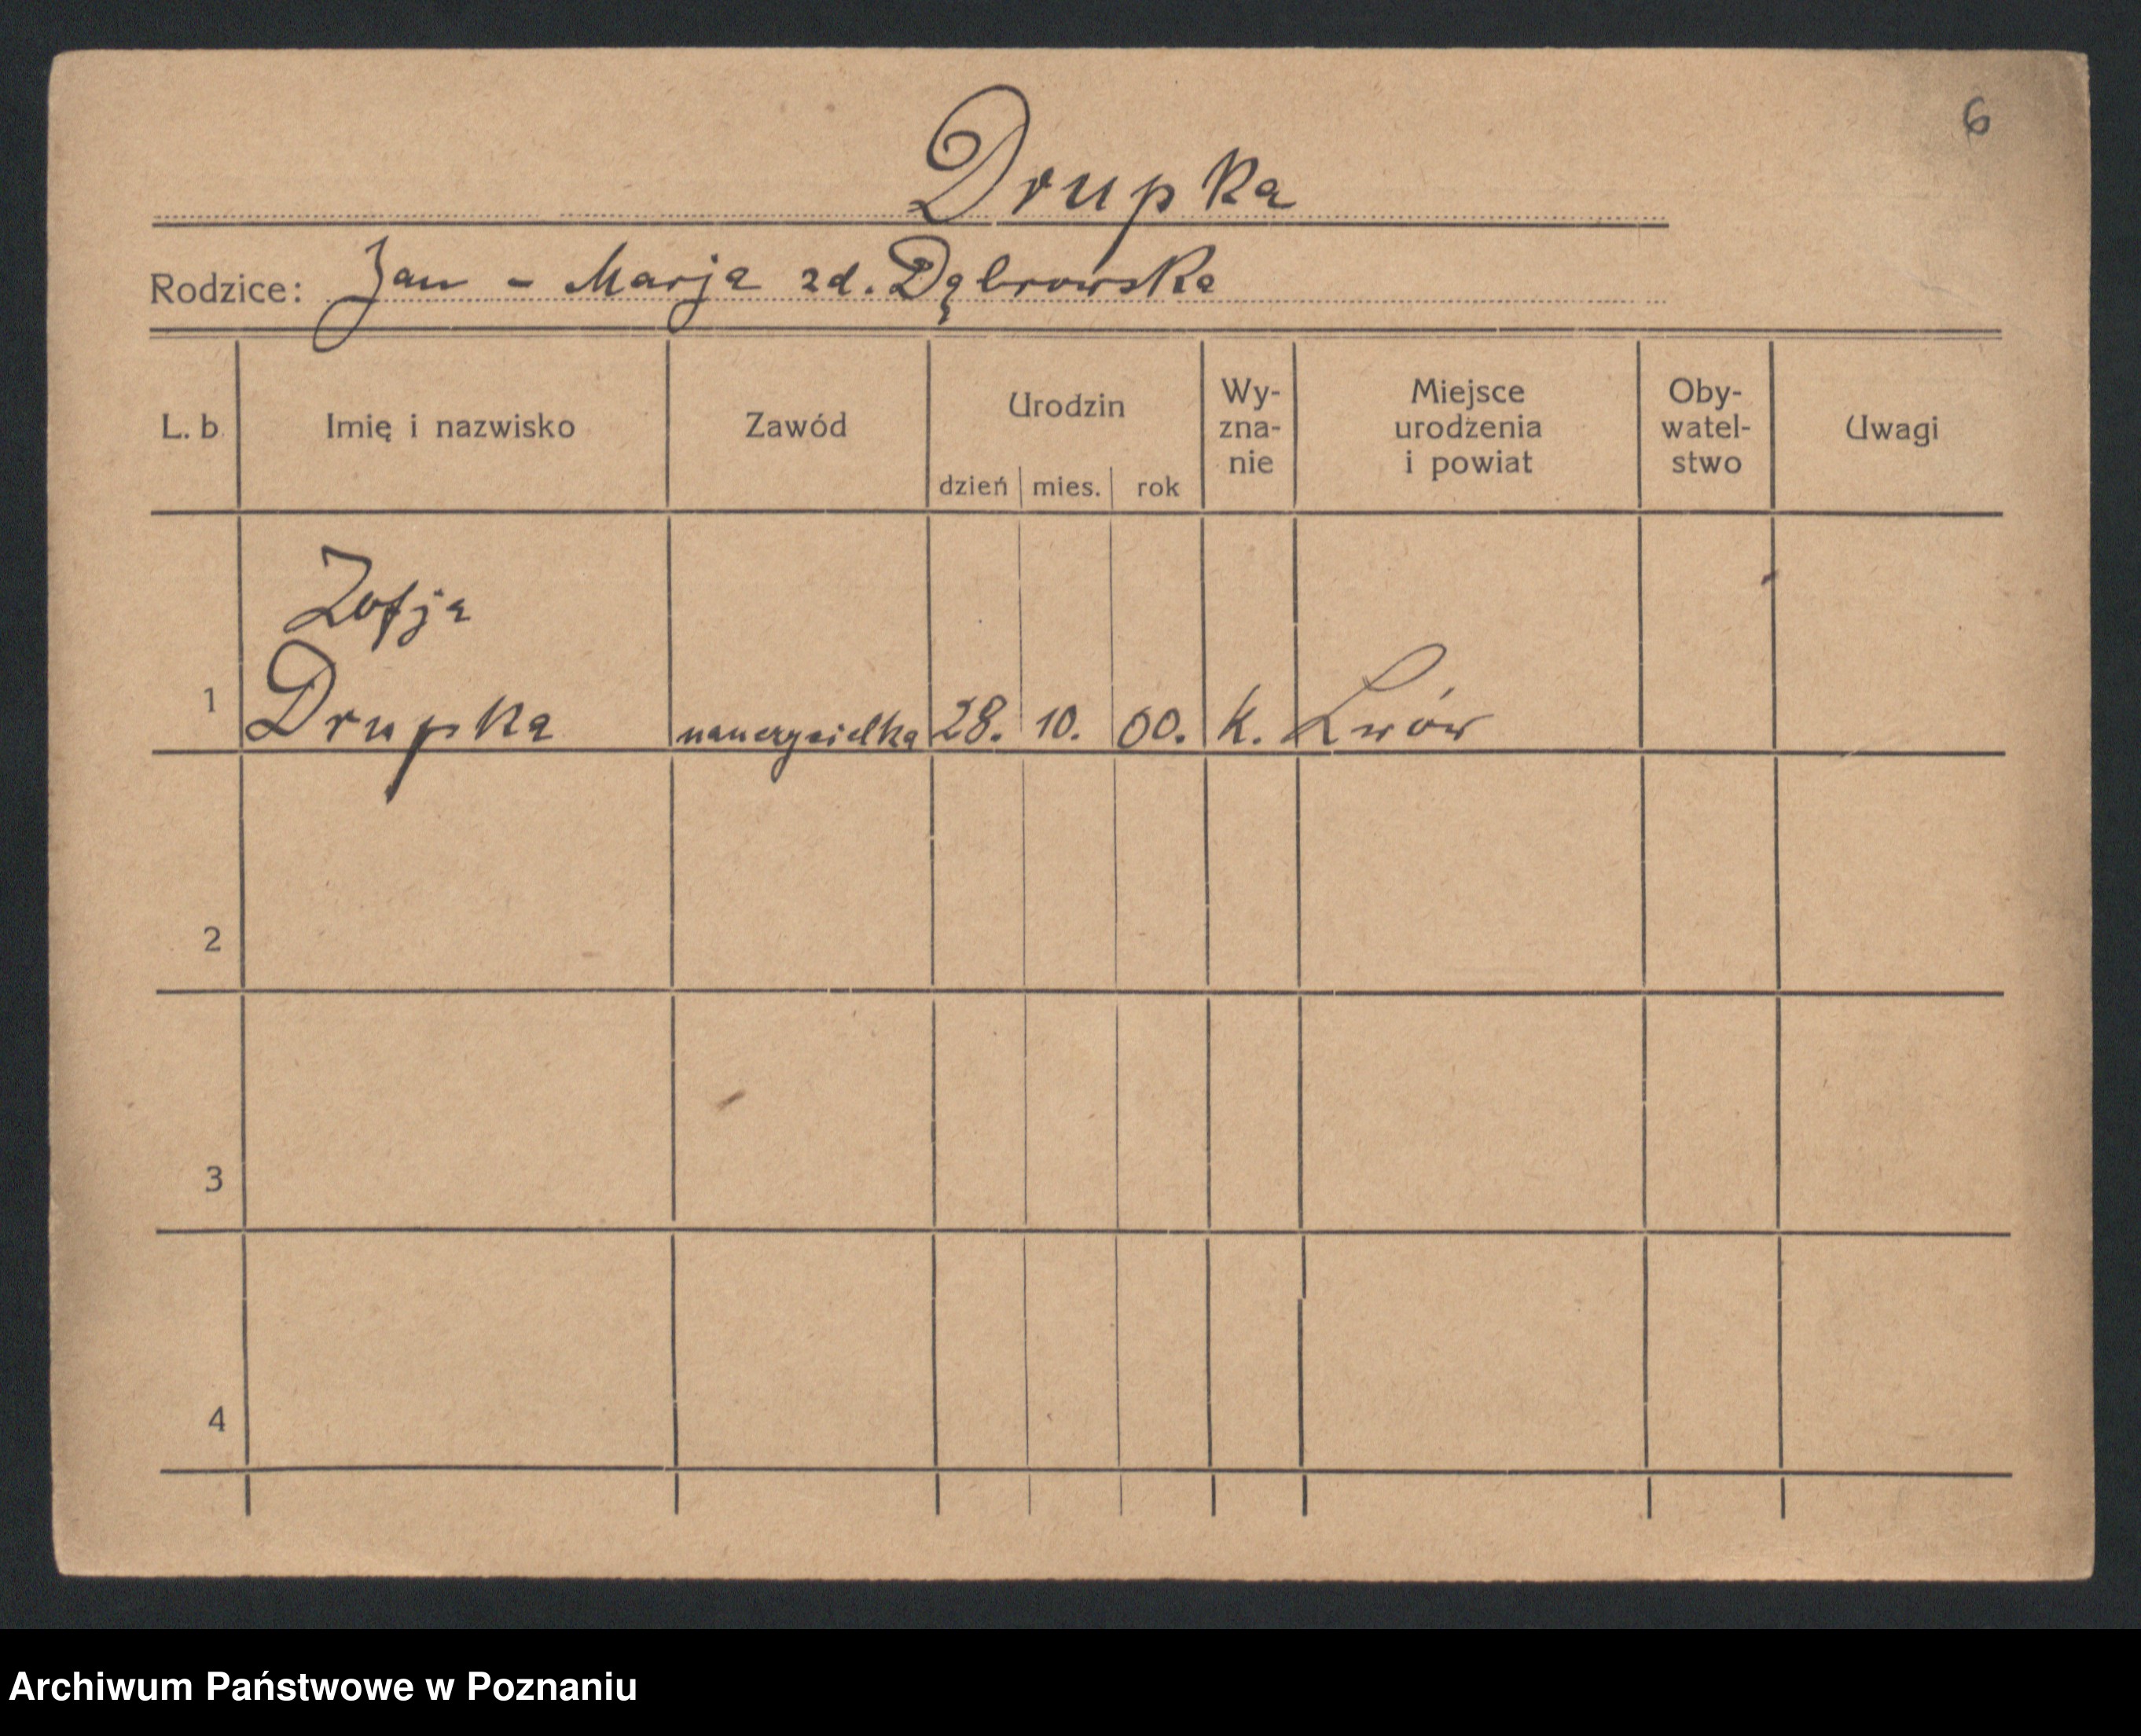 6
Drupka
Rodzice: Jan - Marja zd. Dąbrowska
L. b.
Imię i nazwisko
Zawód
Urodzin
dzień mies. rok
Wy-
zna-
nie
Miejsce
urodzenia
i powiat
Oby-
watel-
stwo
Uwagi
Zofja
1 Drupka nauczycielka 28. 10. 00. K. Lwów
2
3
4
Archiwum Państwowe w Poznaniu